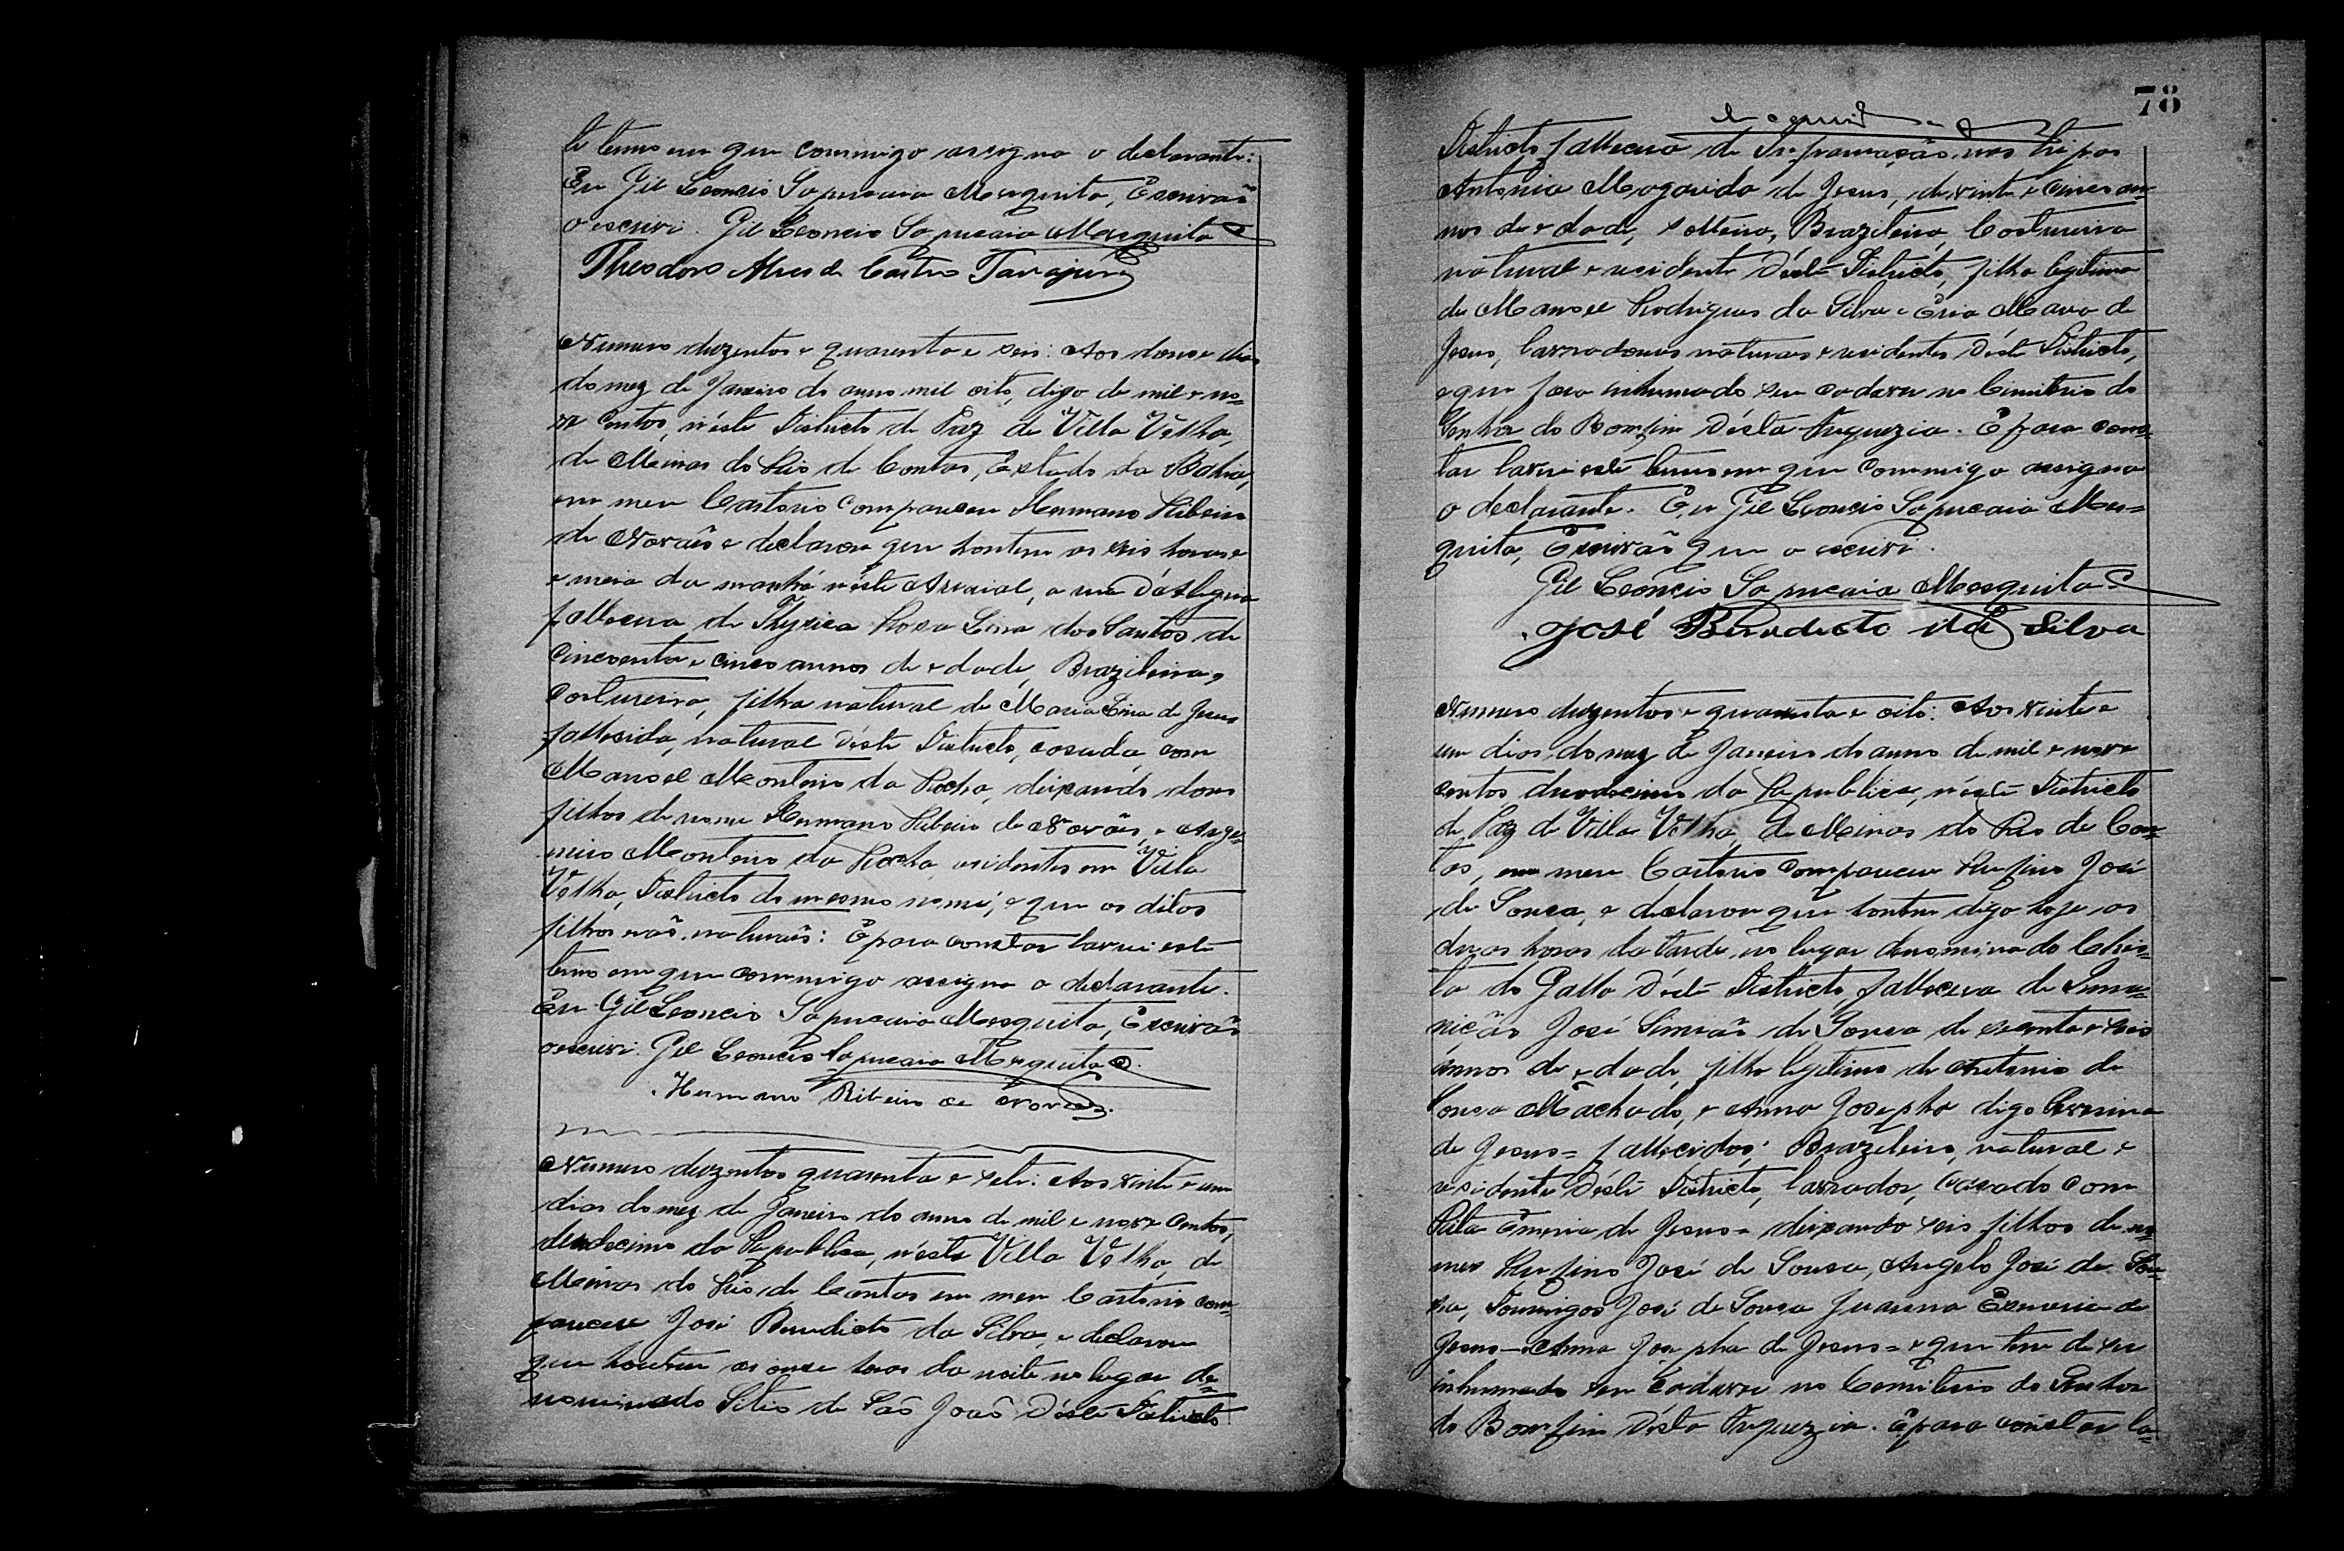 te termo em que commigo assigna o declarante.
Eu Gil Leoncio Sapucaia Mesquita, Escrivaõ
o escrevi. Gil Leoncio Sapucaia Mesquita
Theodoro Alves de Castro Tavajura
Numero duzentos e quarenta e seis: Aos dose dias
do mez de Janeiro do anno mil oito, digo de mil e no=
ve centos, n'este Districto de Paz de Villa Velha,
de Minas do Rio de Contas, Estado da Bahia,
em meu Cartorio compareceu Hermano Ribeiro
de Novaes e declarou que hontem as seis horas e
e meia da manhã n'este Arraial, a rua
falleceu de Thysica Rosa Lina dos Santos de
cincoenta e cinco annos de edade, Brazileira,
costureira, filha natural de Maria Lina de Jesus
fallecida, natural d'este Districto, casada com
Manoel Monteiro da Rocha, deixando dous
filhos de nome Hermano Ribeiro de Novaes, e
Monteiro da Rocha residentes em Villa
Velha, Districto do mesmo nome, e que os ditos
filhos saõ naturaes: E para constar lavrei este
termo em que commigo assigna o declarante.
Eu Gil Leoncio Sapucaia Mesquita, Escrivaõ
o escrevi. Gil Leoncio Sapucaia Mesquita
Hermano Ribeiro de Novaes.
Numero duzentos quarenta e sete: Aos vinte e um
dias do mez de Janeiro do anno de mil e nove centos,
duodecimo da Republica, n'esta Villa Velha, de
Minas do Rio de Contas em meu Cartorio com=
pareceu José Benedicto da Silva, e declarou
que hontem as onze horas da noite no lugar de=
nominado Sitio de Saõ Joaõ d'este Districto
78
Districto falleceu de Inflamaçaõ nas tripas
Antonia Magarida de Jesus, de vinte e cinco an=
nos de edade, solteira, Brazileira, Costureira
natural e residente d'este Districto, filha legitima
de Manoel Rodrigues da Silva e Maria de
Jesus, lavradores naturaes e residentes d'este Districto,
e que fora inhumado seu cadaver no Cemiterio do
Senhor do Bomfim d'esta Freguezia. E para cons=
tar lavrei este termo em que commigo assigna
o declarante. Eu Gil Leoncio Sapucaia Mes=
quita, Escrivaõ que o escrevi.
Gil Leoncio Sapucaia Mesquita
José Benedicto da Silva
Numero duzentos e quarenta e oito: Aos vinte e
um dias do mez de Janeiro do anno de mil e nove
centos duodecimo da Republica, n'este Districto
de Paz de Villa Velha, de Minas do Rio de Con=
tas, em meu Cartorio compareceu Rufino José
de Sousa, e declarou que hontem digo hoje as
duas horas da tarde, no lugar denominado
do Gallo d'este Districto, falleceu de
José Simeaõ de Sousa de secenta e seis
annos de edade, filho legitimo de Antonio de
Sousa Machado, e Anna Josepha digo
de Jesus= fallecidos; Brazileiro, natural e
residente d'este Districto, lavrador, casado com
Rita de Jesus= deixando seis filhos de no=
mes Rufino José de Sousa, Angelo José de Sou=
sa, Domingos José de Sousa de
Jesus— Anna Josepha de Jesus= e que tem de ser
inhumado seu cadaver no Cemiterio do Senhor
do Bomfim d'esta Freguezia. E para constar la=